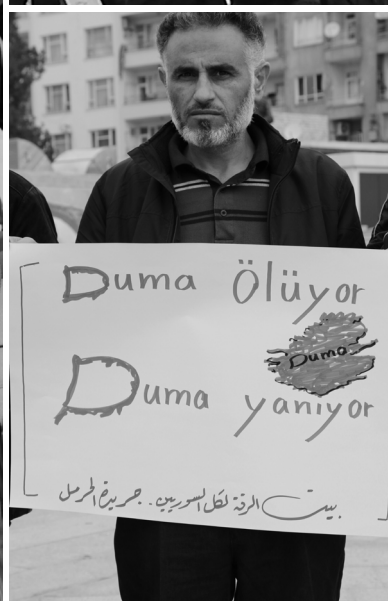 Duma Ölüyor
Duma
Duma yanıyor
بيت الرقة لكل السوريين . جريدة الحرمل